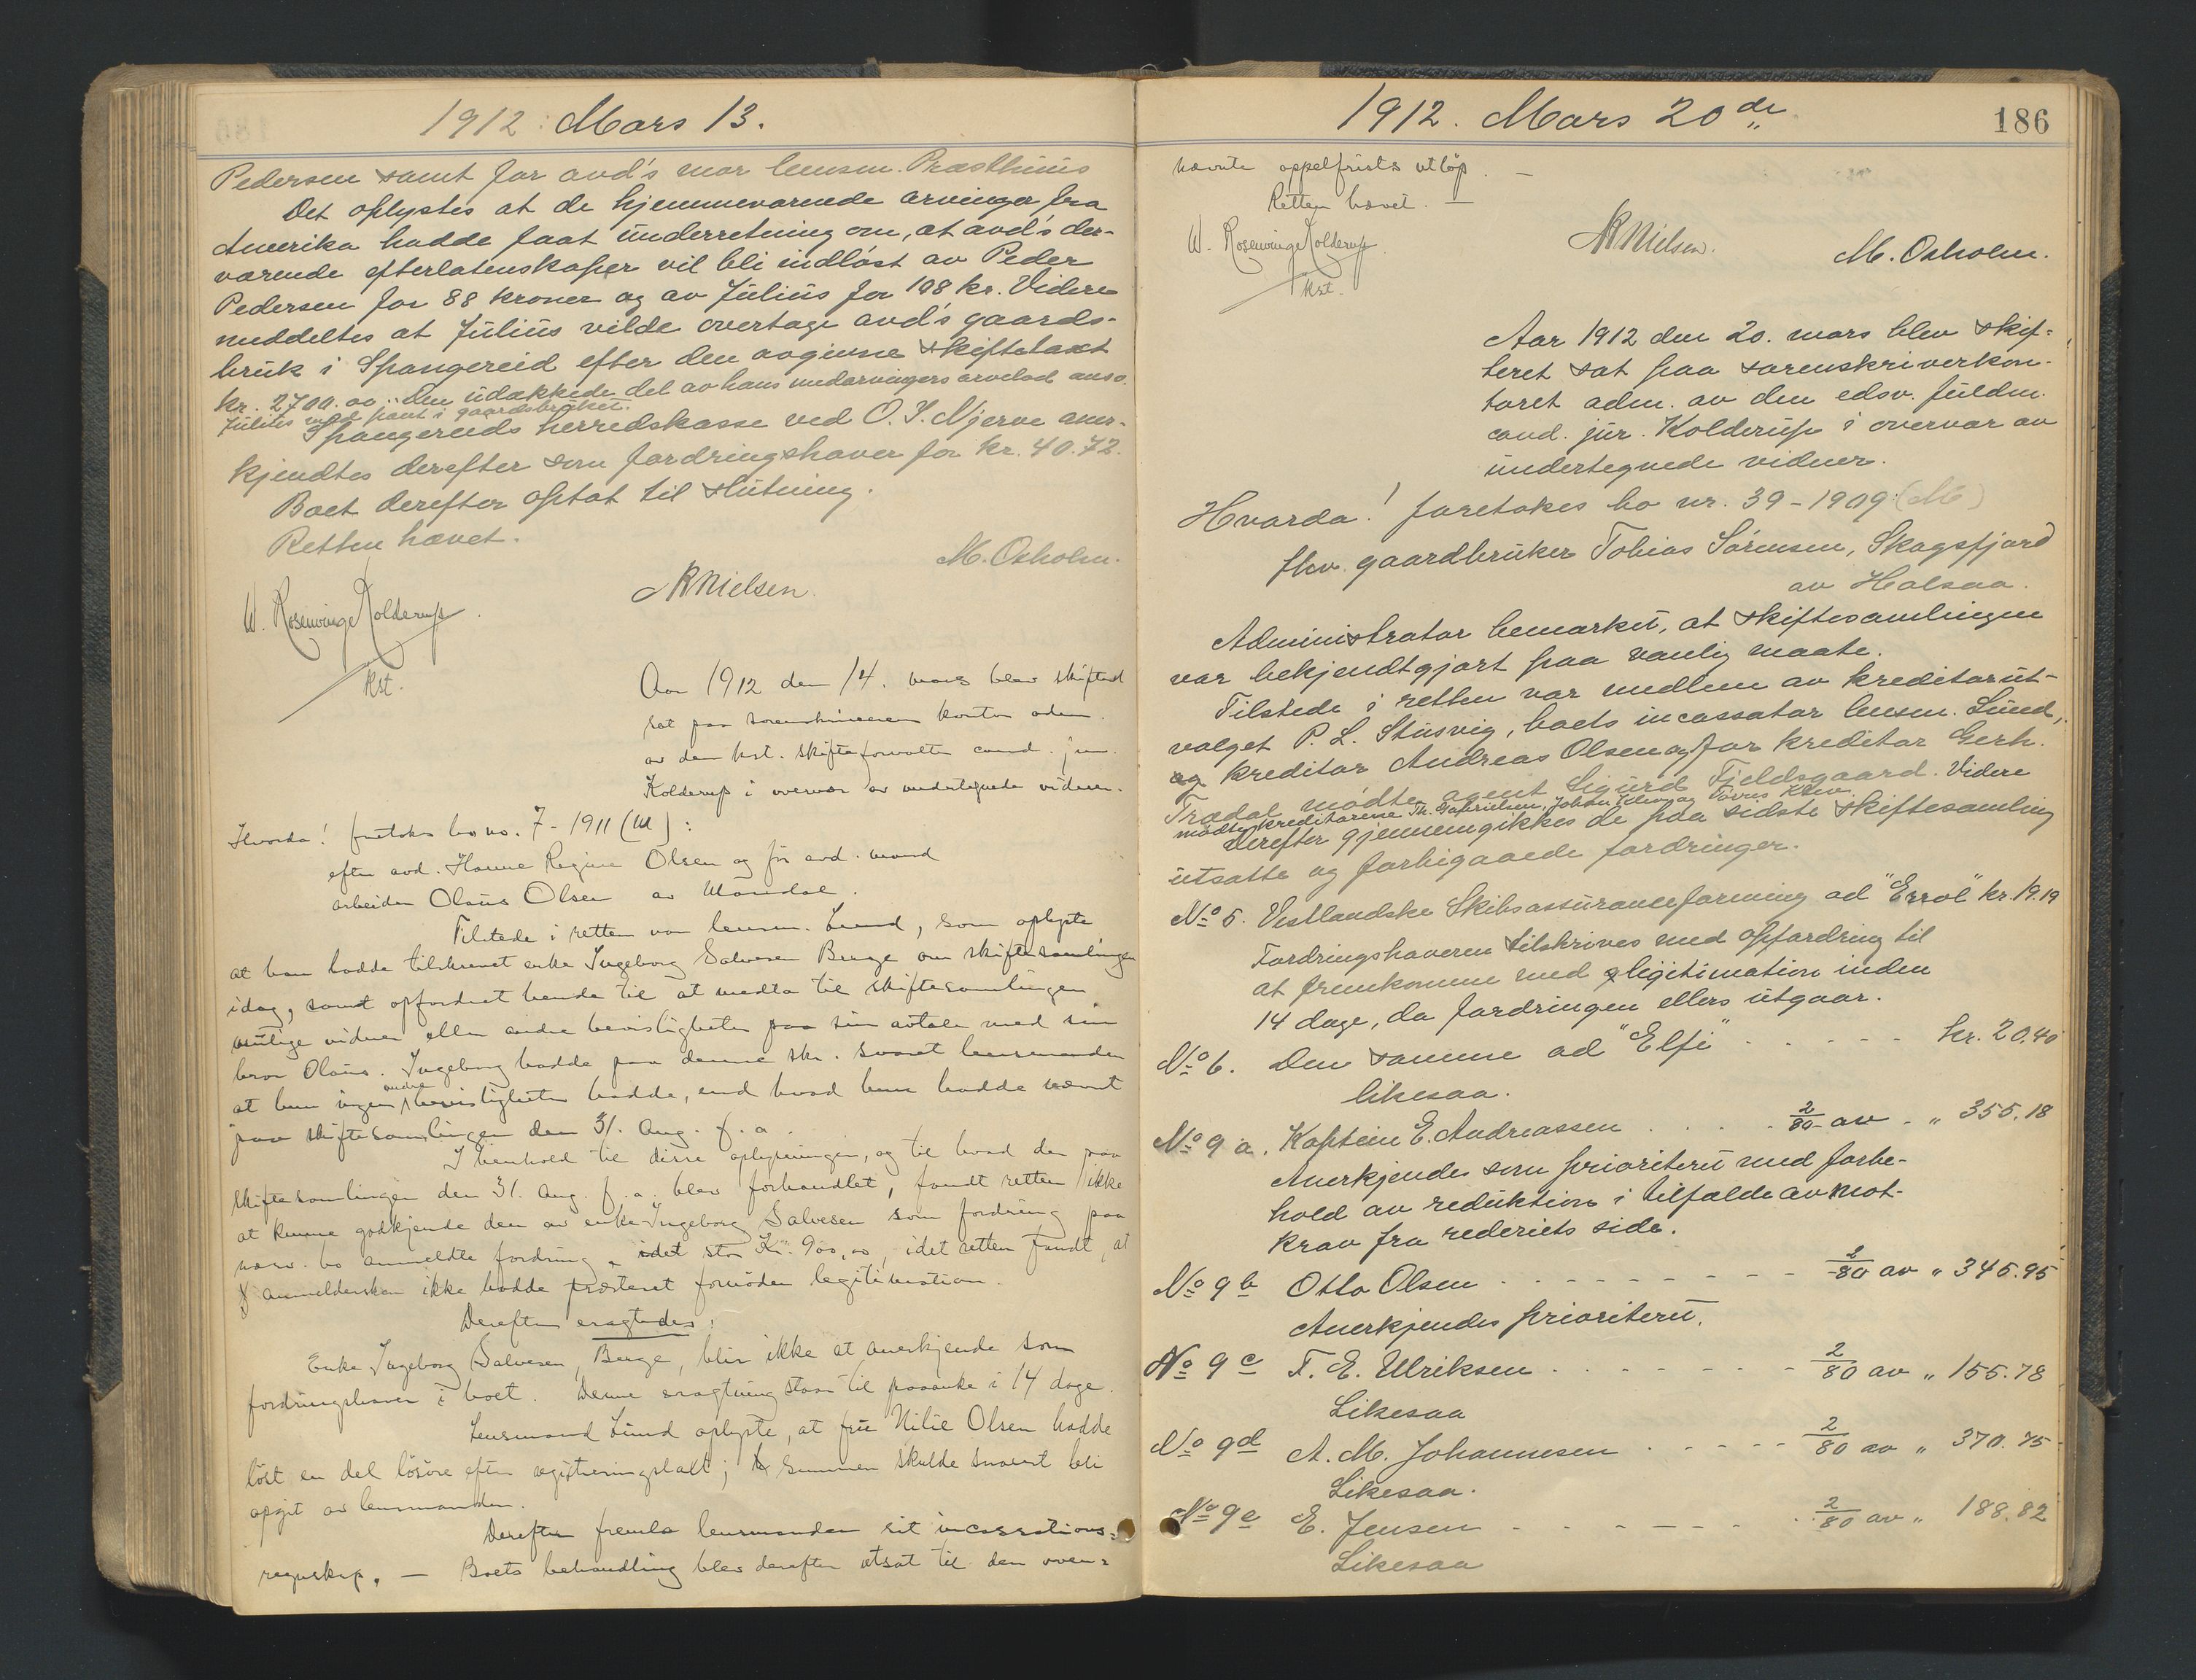 1912. Mars 13.
Pedersen samt for avd's mor lensm. Præsthuus
Det oplystes at de hjemmeværende arvinger fra
Amerika hadde faat underretning om, at avd's der-
værende efterlatenskaper vil bli indløst av Peder
Pedersen for 88 kroner og av Julius for 108 kr. Videre
meddeltes at Julius vilde overtage avd's gaards-
bruk i Spangereid efter den avgivne skiftetaxt
kr. 2700.00. Den udækkede del av hans medarvingers arvelod ansv.
Julius med pant i gaardsbruket.
Spangereids herredskasse ved O. S. Njerve aner-
kjendtes derefter som fordringshaver for kr. 40.72.
Boet derefter optat til slutning.
Retten hævet.
M. Oxholm.
W. Rosenvinge Kolderup
kst.
Nielsen.
Aar 1912 den 14. mars blev skifteret
sat paa sorenskriverens kontor adm.
av den kst. skifteforvalter cand. jur.
Kolderup i overvær av undertegnede vidner.
Hvorda! foretokes bo no. 7-1911 (M):
efter avd. Hanne Regine Olsen og før avd. mand
arbeider Olaus Olsen av Mandal.
Tilstede i retten var lensm. Lund, som oplyste
at han hadde tilskrevet enke Ingeborg Salvesen Berge om skiftesamlingen
idag, samt opfordret hende til at medta til skiftesamlingen
mulige vidner eller andre bevisligheter paa sin avtale med sin
bror Olaus. Ingeborg hadde paa denne skr. svaret lensmanden
at hun ingen andre bevisligheter hadde, end hvad hun hadde nævnt
paa skiftesamlingen den 31. Aug. f. a.
I henhold til disse oplysninger, og til hvad der paa
skiftesamlingen den 31. Aug. f. a. blev forhandlet, fandt retten ikke
at kunne godkjende den av enke Ingeborg Salvesen som fordring paa
nærv. bo anmeldte fordring, stor Kr. 900,00, idet retten fandt, at
anmeldersken ikke hadde præsteret fornøden legitimation.
Derefter eragtedes:
Enke Ingeborg Salvesen, Berge, blir ikke at anerkjende som
fordringshaver i boet. Denne eragtning staar til paaanke i 14 dage.
Lensmand Lund oplyste, at fru Nilie Olsen hadde
løst en del løsøre efter registreringstakst; Summen skulde snarest bli
opgit av lensmanden.
Derefter fremla lensmanden sit incassations-
regnskap. — Boets behandling blev derefter utsat til den oven-
1912. Mars 20de
186
nævnte appelfrists utløp. —
Retten hævet. —
W. Rosenvinge Kolderup
kst.
Nielsen.
M. Oxholm.
Aar 1912 den 20. mars blev skif-
teret sat paa sorenskriverkon-
toret adm. av den edsv. fuldm.
cand. jur. Kolderup i overvær av
undertegnede vidner.
Hvorda! foretokes bo nr. 39-1909 (M)
fhv. gaardbruker Tobias Sørensen, Skogsfjord
av Halsaa.
Administrator bemærket, at skiftesamlingen
var bekjendtgjort paa vanlig maate.
Tilstede i retten var medlem av kreditorut-
valget P. L. Stusvig, boets incassator lensm. Lund,
kreditor Andreas Olsen og for kreditor Gerh.
Trædal mødte agent Sigurd Fjeldsgaard. Videre
mødte kreditorerne Th. Gabrielsen, Johan Klev og Torris Klev.
Derefter gjennemgikkes de paa sidste skiftesamling
utsatte og forbigaaede fordringer.
No 5. Vestlandske Skibsassuranceforening ad "Errol" kr. 19.19
Fordringshaveren tilskrives med opfordring til
at fremkomme med legitimation inden
14 dage, da fordringen ellers utgaar.
No 6. Den samme ad "Elfi" - - - - - kr. 20.40
likesaa.
No 9 a. Kaptein E. Andreassen . . . . 2/80 av - " 355.18
Anerkjendes som prioritert med forbe-
hold av reduktion i tilfælde av mot-
krav fra rederiets side.
No 9 b Otto Olsen - - - - - - - - - 2/80 av " 345.95
Anerkjendes prioritert.
No 9 c T. E. Ulriksen . - - - - - - 2/80 av " 155.78
Likesaa
No 9 d A. M. Johannesen . - - - - - 2/80 av " 370.75
Likesaa.
No 9 e E. Jensen - - - - - - - - 2/80 av " 188.82
Likesaa